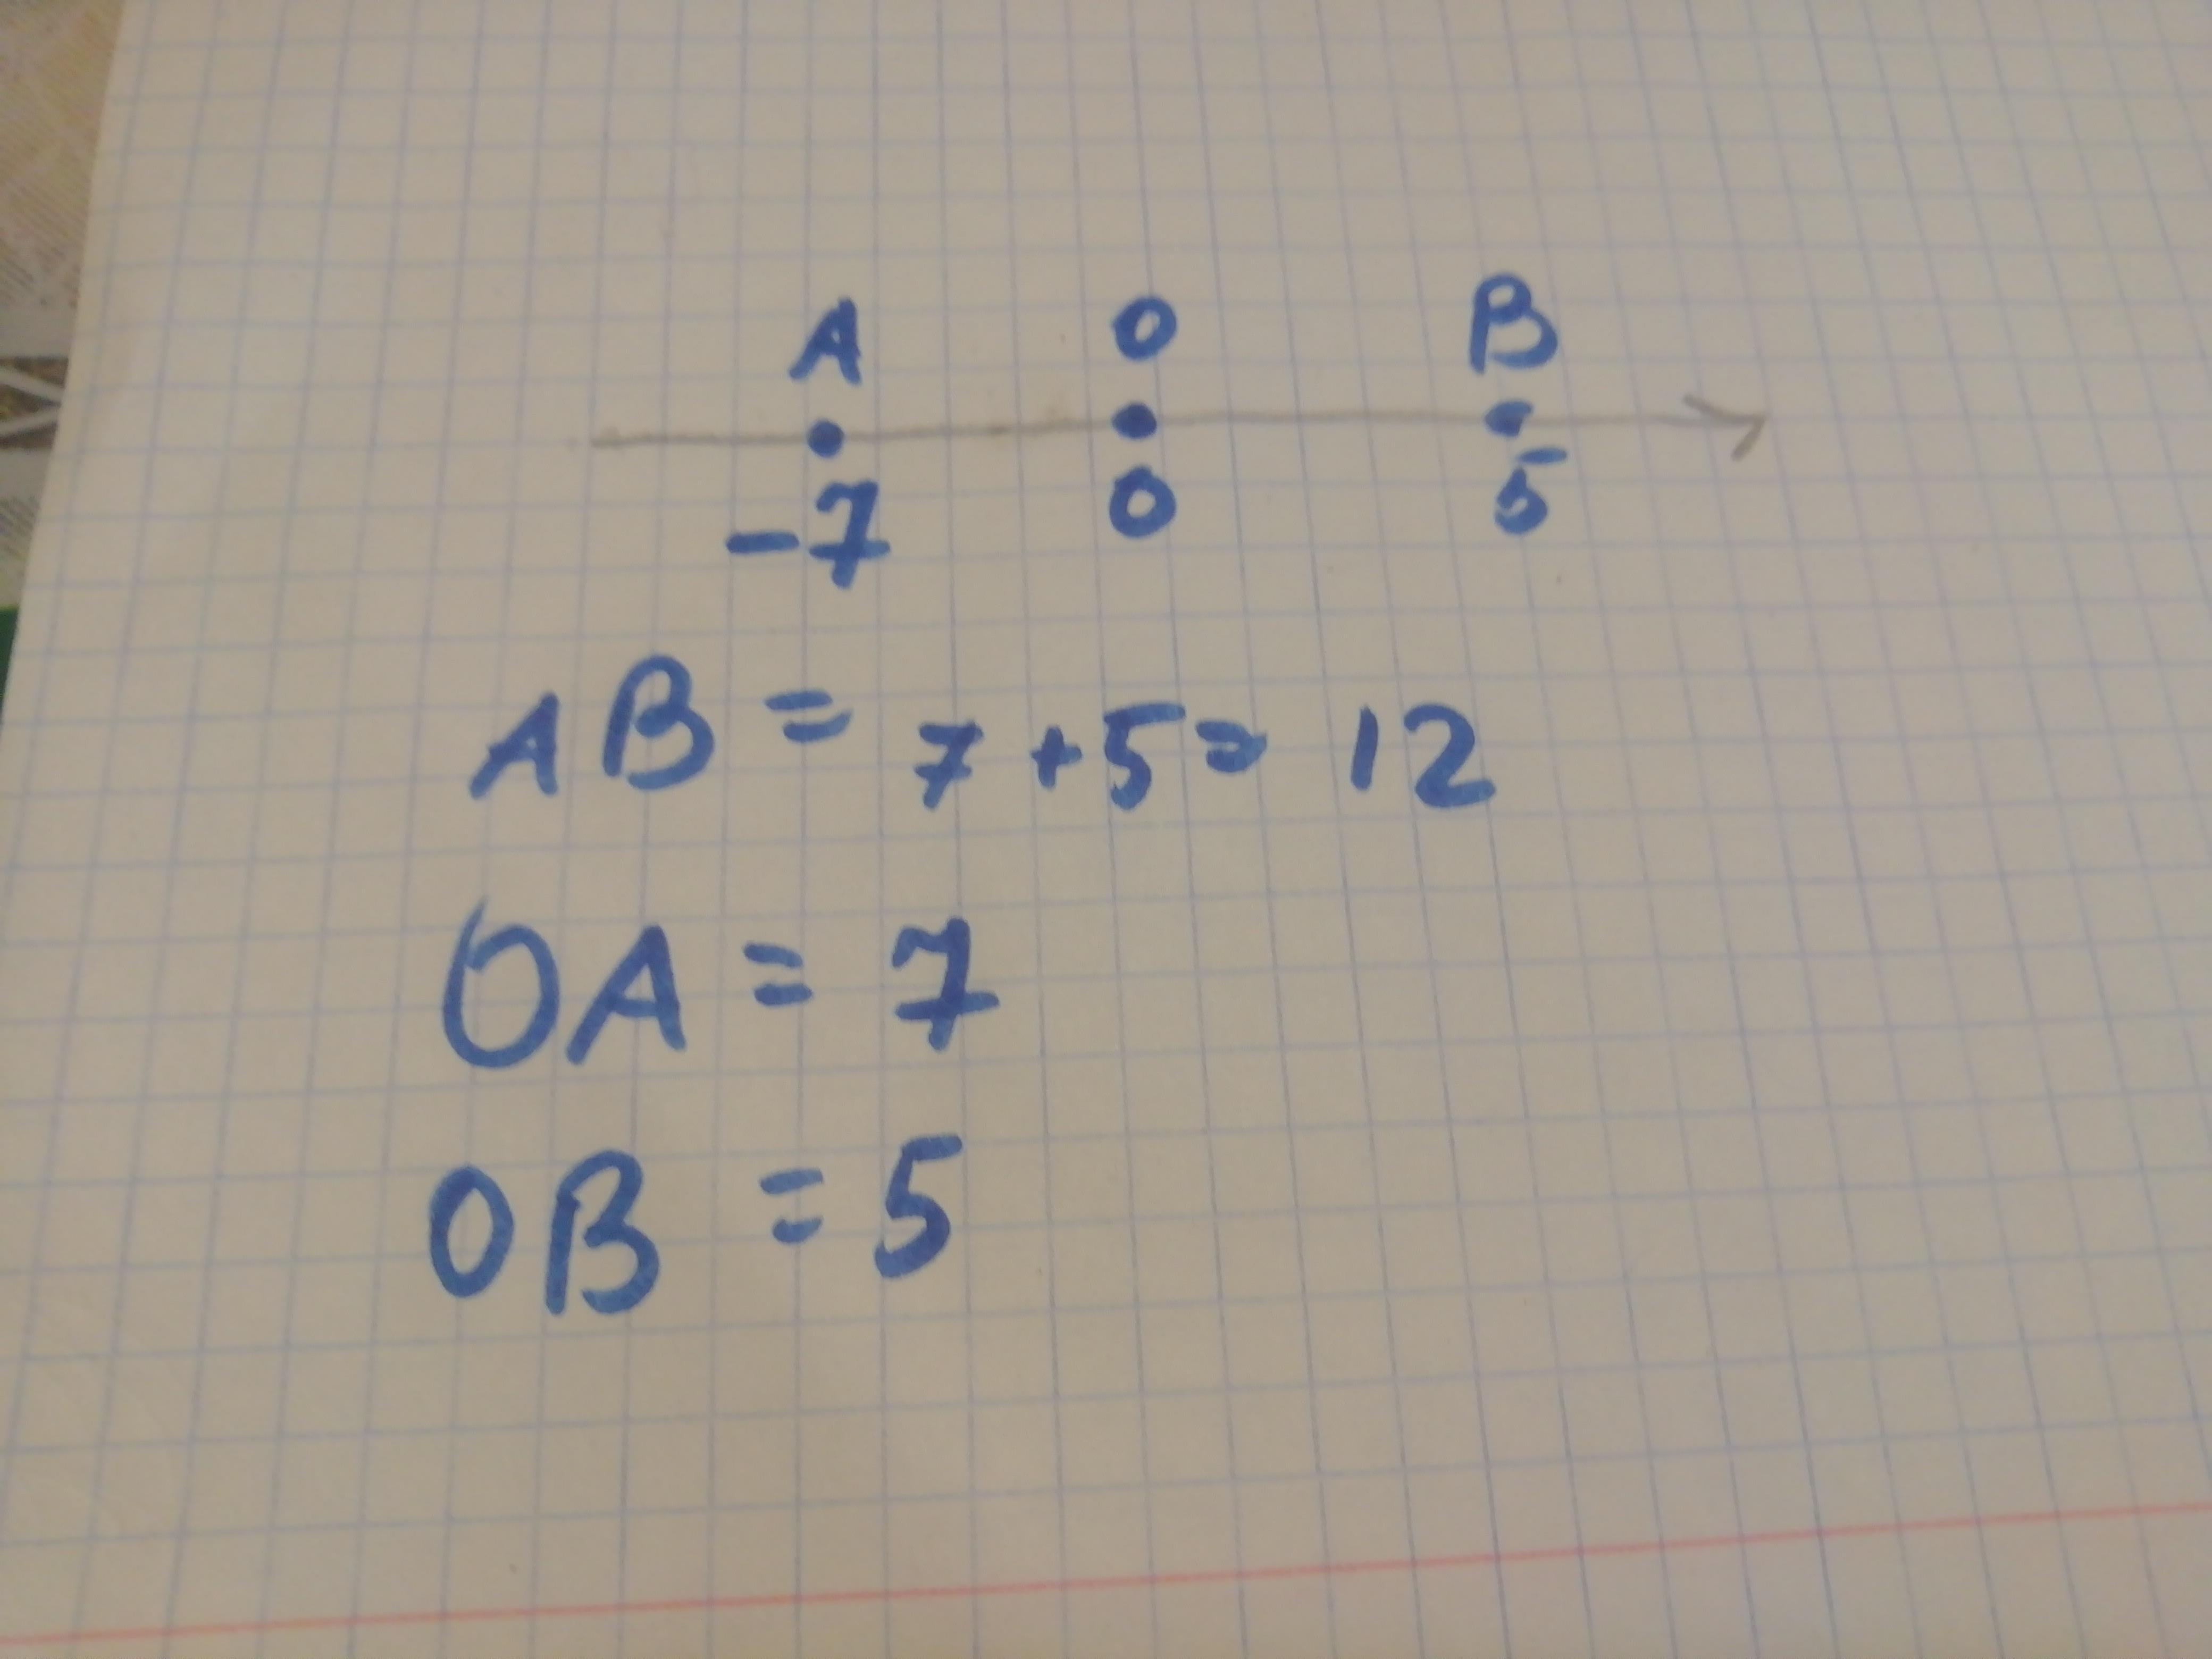 A O B
-7 0 5
AB = 7 + 5 = 12
OA = 7
OB = 5